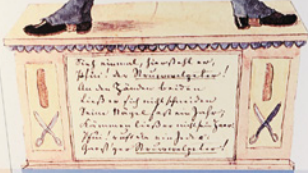 Sieh einmal, hier steht er,
Pfui! der Struwwelpeter!
An den Händen beiden
Ließ er sich nicht schneiden
Seine Nägel fast ein Jahr;
Kämmen ließ er nicht sein Haar.
Pfui! ruft da ein Jeder:
Garst'ger Struwwelpeter!